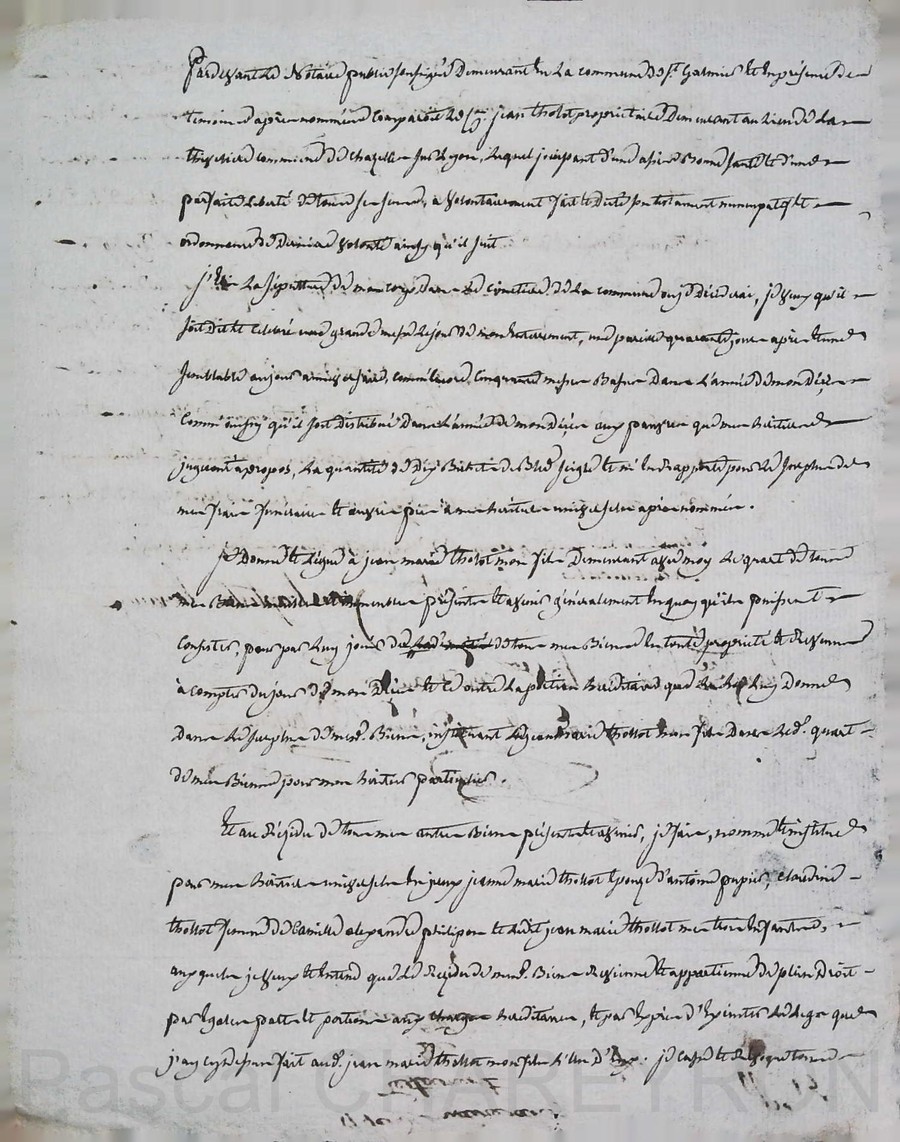 Pardevant le Notaire public soussigné Demeurant en la commune de St Galmier et en présence de
temoins d'après nommés comparoit le Cn. jean thollot proprietaire Demeurant au lieu de la
thivoliere commune de Chazelle sur Lyon, Lequel jouissant d'une assés Bonne santé et d'une
parfaite Liberté de tous ses sens, a volontairement fait et Dicté son testament nuncupatif et
ordonnance de Derniere volonté ainsy qu'il suit
La sépulture de mon corps dans le cimetiere de la commune ou je Décéderai, je veux qu'il
soit Dit et Celebré une grande messe le jour de mon enterrement, une pareille quarante jours après et une
semblable au jour anniversaire, comm'encore Cinquante messes Basses Dans L'année de mon Décès
Comm' aussy qu'il soit Distribué Dans L'année de mon Décès aux pauvres que mes héritiers
jugeront apropos, La quantité de Dix Bichets de Bled seigle et m'en rapporte pour le surplus de
mes frais funéraires et œuvres pies à mes héritiers universels cy après nommés.
Je Donne et Légue à jean marie thollot mon fils Demeurant avec moy Le quart de tous
mes Biens meubles et immeubles présents et avenir généralement en quoy qu'ils puissent
Consister, pour par Luy jouir de tous mes Biens en toute propriété et revenus
à compter du jour de mon Décès et ce outre La portion héréditaire que je Luy Donne
Dans Le surplus de mesd. Biens, instituant Led. jean marie thollot mon fils Dans Led. quart
de mes Biens pour mon héritier particulier.
Et au Résidu de tous mes autres Biens présents et avenir, je fais, nomme et institue
pour mes héritiers universels en iceux jeanne marie thollot épouze d'antoine pupier, claudine
thollot femme de Camille alexandre philipon et Ledit jean marie thollot mes trois enfants,
auxquels je veux et entend que le Résidu de mesd. Biens Revienne et appartienne de plein Droit
par egales parts et portions aux charges héréditaires, et par Exprès d'Exécuter Le Legs que
j'ay cy dessus fait aud. jean marie thollot mon fils L'un D'Eux. je casse et Révoque tous
Pascal CHAREYRON